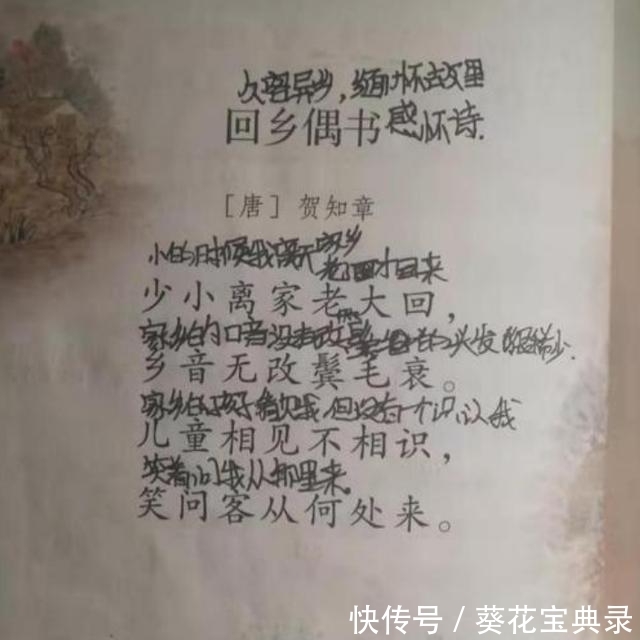 久客异乡，缅怀故里
感怀诗.
回乡偶书
［唐］贺知章
小的时候我离开家乡
老了才回来
少小离家老大回，
家乡的口音没有改 头发 稀少.
乡音无改鬓毛衰。
家乡的孩子看见我 但没有一个认识我
儿童相见不相识，
笑着问我从那里来
笑问客从何处来。
快传号 / 葵花宝典录